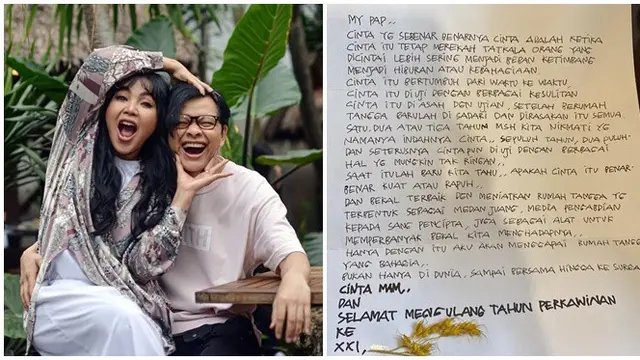 MY PAP,,
CINTA YG SEBENAR BENARNYA CINTA ADALAH KETIKA
CINTA ITU TETAP MEREKAH TATKALA ORANG YANG
DICINTAI LEBIH SERING MENJADI BEBAN KETIMBANG
MENJADI HIBURAN ATAU KEBAHAGIAAN.
CINTA ITU BERTUMBUH DARI WAKTU KE WAKTU
CINTA ITU DI UJI DENGAN BERBAGAI KESULITAN
CINTA ITU DI ASAH DGN UJIAN, SETELAH BERUMAH
TANGGA BARULAH DI SADARI DAN DIRASAKAN ITU SEMUA.
SATU, DUA ATAU TIGA TAHUN MSH KITA NIKMATI YG
NAMANYA INDAHNYA CINTA,, SEPULUH TAHUN, DUA PULUH
DAN SETERUSNYA CINTAPUN DI UJI DENGAN BERBAGAI
HAL YG MUNGKIN TAK RINGAN,,
SAAT ITULAH BARU KITA TAHU,, APAKAH CINTA ITU BENAR-
BENAR KUAT ATAU RAPUH,,
DAN BEKAL TERBAIK DGN MENIATKAN RUMAH TANGGA YG
TERBENTUK SEBAGAI MEDAN JUANG, MEDIA PENGABDIAN
KEPADA SANG PENCIPTA, JUGA SEBAGAI ALAT UNTUK
MEMPERBANYAK BEKAL KITA MENGHADAPNYA,,
HANYA DENGAN ITU AKU AKAN MENGGAPAI RUMAH TANGG
YANG BAHAGIA,,
BUKAN HANYA DI DUNIA, SAMPAI BERSAMA HINGGA KE SURGA
CINTA MMM,,
DAN
SELAMAT MENGULANG TAHUN PERKAWINAN
KE
XXI,